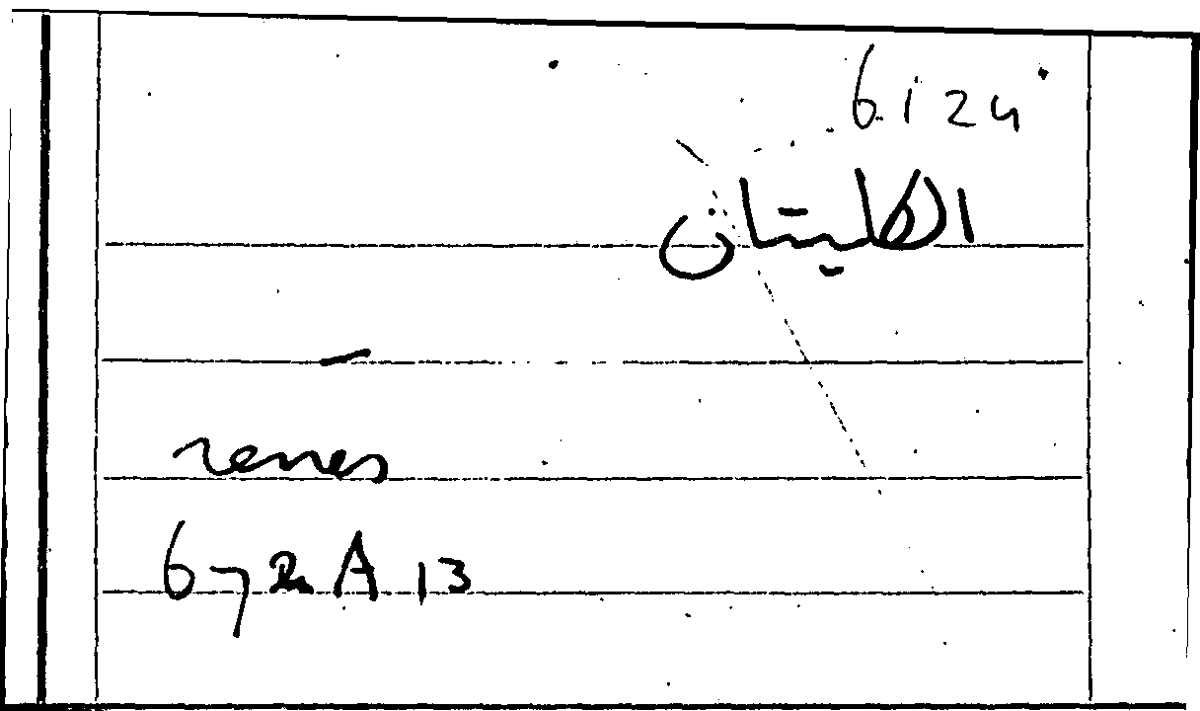 6.1 24
الكليتان
renes
672 A 13